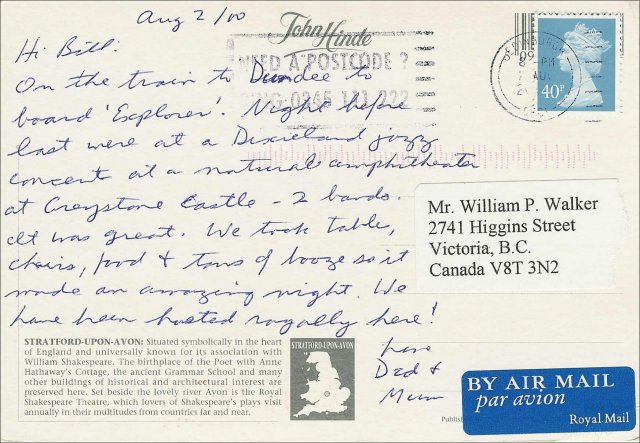 Aug 2/00
John Hinde
NEED A POSTCODE ?
RING 0345 111 222
EDINBURGH
40P
Hi Bill:
On the train to Dundee to
board 'Explorer'. Night before
last were at a Dixieland jazz
concert at a natural amphitheater
at Greystone Castle - 2 bands.
It was great. We took table,
chairs, food & tons of booze so it
made an amazing night. We
have been hosted royally here!
Love
Dad &
Mum
Mr. William P. Walker
2741 Higgins Street
Victoria, B.C.
Canada V8T 3N2
STRATFORD-UPON-AVON: Situated symbolically in the heart
of England and universally known for its association with
William Shakespeare. The birthplace of the Poet with Anne
Hathaway's Cottage, the ancient Grammar School and many
other buildings of historical and architectural interest are
preserved here. Set beside the lovely river Avon is the Royal
Shakespeare Theatre, which lovers of Shakespeare's plays visit
annually in their multitudes from countries far and near.
STRATFORD-UPON-AVON
BY AIR MAIL
par avion
Royal Mail